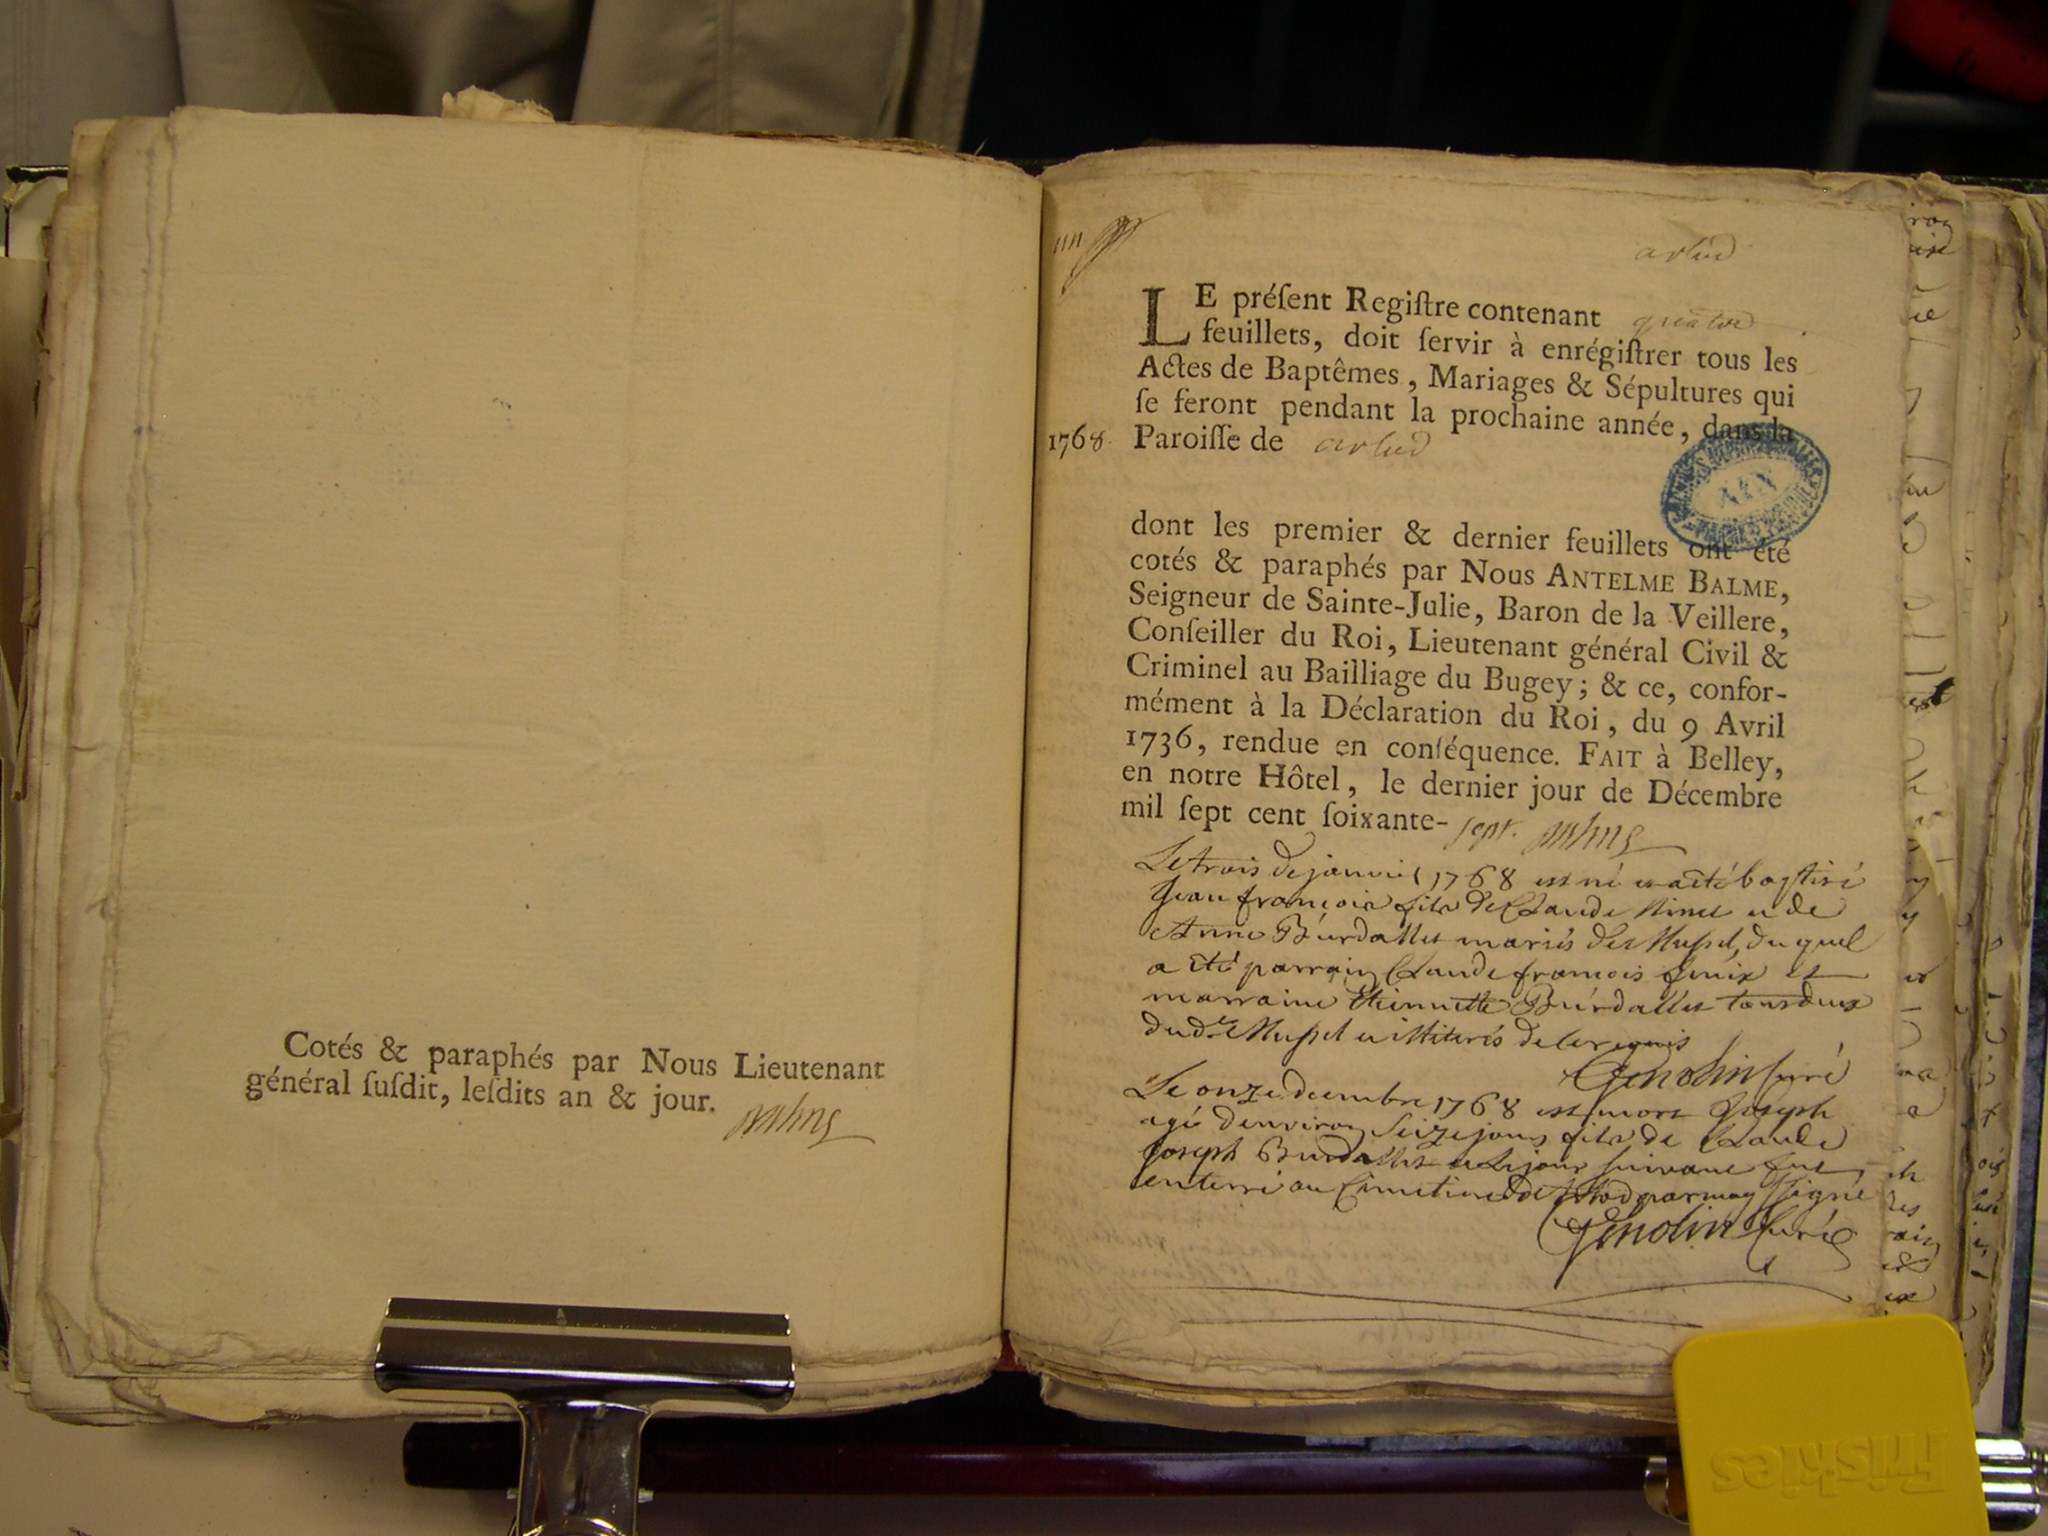 Cotés & paraphés par Nous Lieutenant
général ſuſdit, leſdits an & jour.
un
arlod
LE préſent Regiſtre contenant quatre
feuillets, doit ſervir à enrégiſtrer tous les
Actes de Baptêmes, Mariages & Sépultures qui
ſe feront pendant la prochaine année, dans la
1768. Paroiſſe de arlod
dont les premier & dernier feuillets ont été
cotés & paraphés par Nous ANTELME BALME,
Seigneur de Sainte-Julie, Baron de la Veillere,
Conſeiller du Roi, Lieutenant général Civil &
Criminel au Bailliage du Bugey; & ce, confor-
mément à la Déclaration du Roi, du 9 Avril
1736, rendue en conſéquence. FAIT à Belley,
en notre Hôtel, le dernier jour de Décembre
mil ſept cent ſoixante- sept.
Le trois de janvier 1768 est né et a été baptisé
Jean françois fils de Claude Ninet et de
Anne Burdallet mariés de Mussel, du quel
a été parrain Claude françois et
marraine Etiennette Burdallet tous deux
dud. Mussel illiterés de ce requis
Genolin Curé
Le onze decembre 1768 est mort Joseph
agé d'environ seize jours fils de Claude
Joseph Burdallet et le jour suivant fut
enterré au Cimetiere d'Arlod par moy signé
Genolin Curé
Friskies